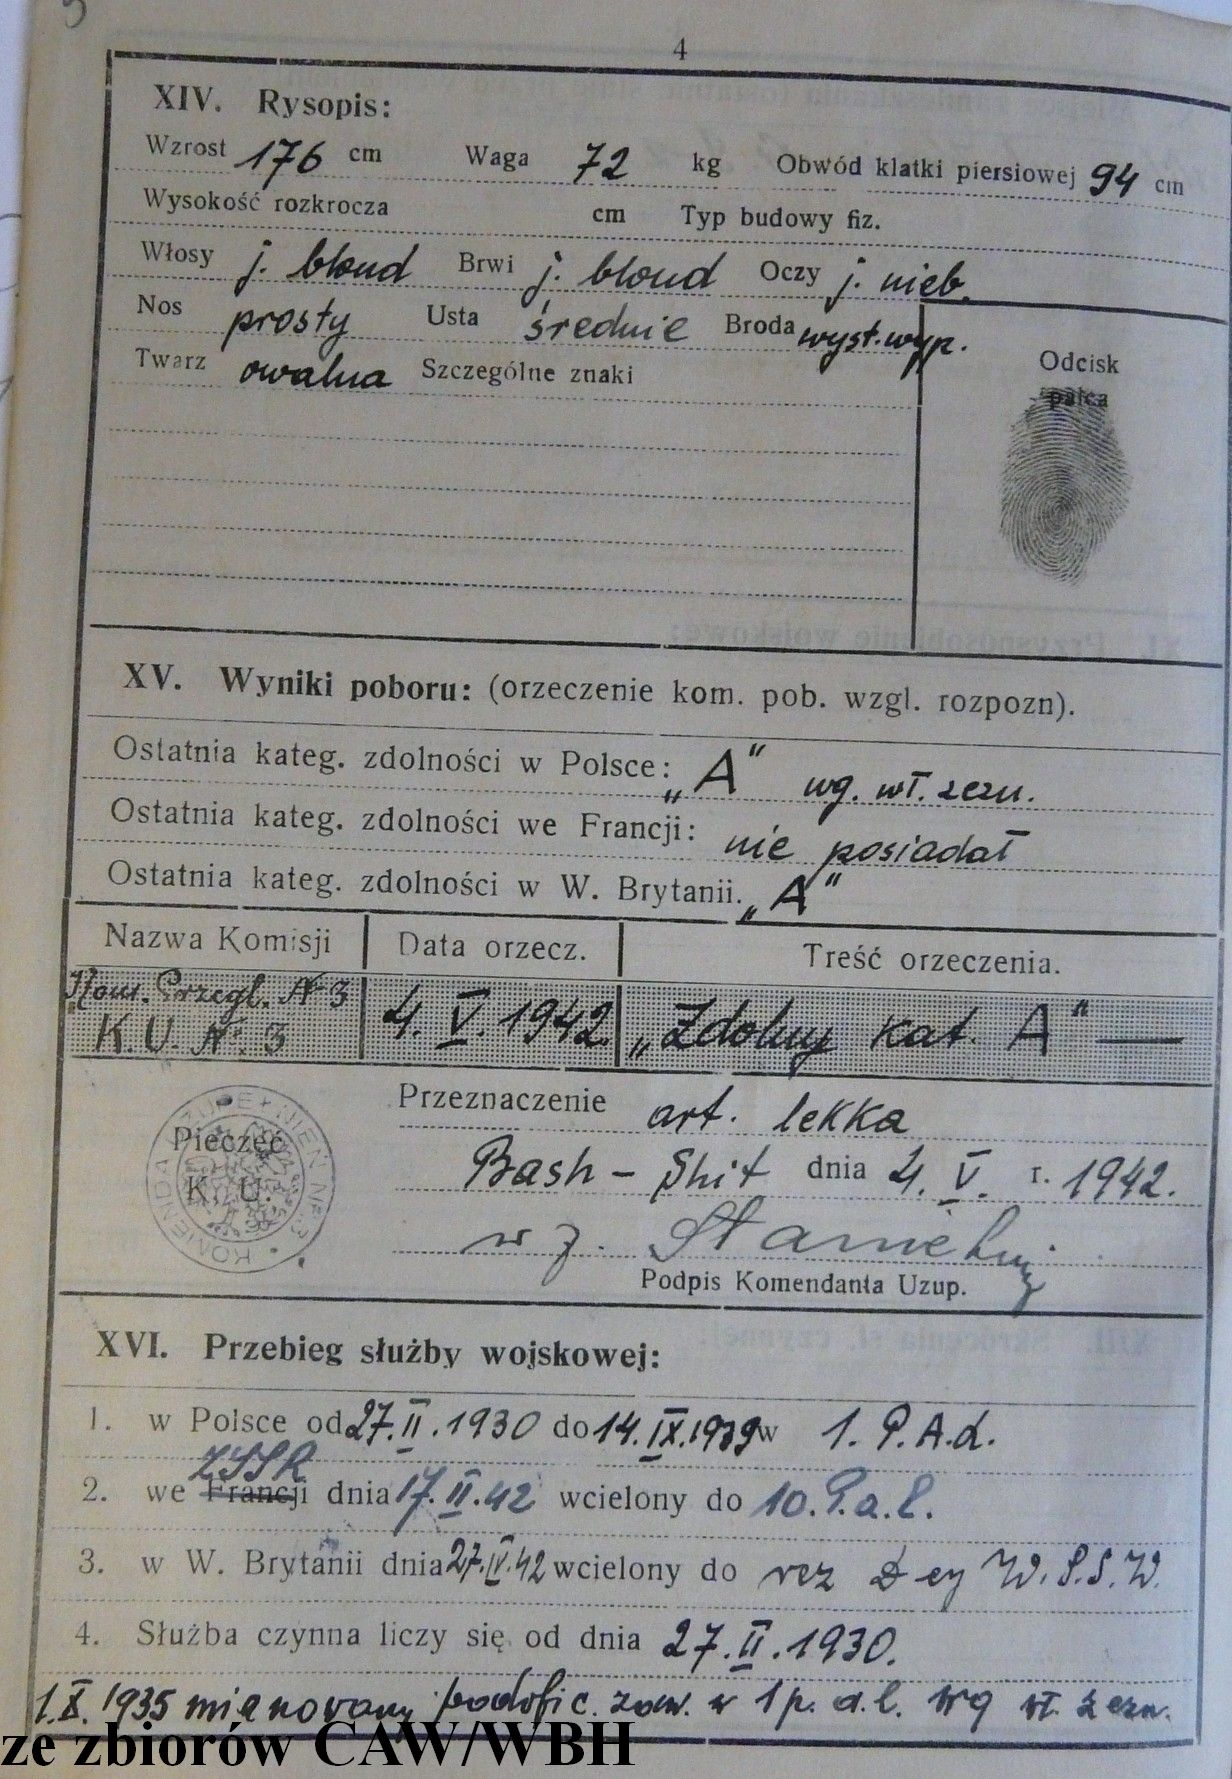 4
XIV. Rysopis:
Wzrost 176 cm Waga 72 kg Obwód klatki piersiowej 94 cm
Wysokość rozkrocza cm Typ budowy fiz.
Włosy j. blond Brwi j. blond Oczy j. nieb.
Nos prosty Usta średnie Broda wyst. wyp.
Twarz owalna Szczególne znaki
Odcisk
palca
XV. Wyniki poboru: (orzeczenie kom. pob. wzgl. rozpozn).
Ostatnia kateg. zdolności w Polsce: „A" wg. wł. zezn.
Ostatnia kateg. zdolności we Francji: nie posiadał
Ostatnia kateg. zdolności w W. Brytanii. „A"
Nazwa Komisji Data orzecz. Treść orzeczenia.
Kom. Przegl. № 3
K.U. Nr. 3 4. V. 1942. „Zdolny kat. A" —
KOMENDA UZUPEŁNIEŃ NR 3
Pieczęć
K. U.
Przeznaczenie art. lekka
Bash - Shit dnia 4. V. r. 1942.
w z.
Podpis Komendanta Uzup.
XVI. Przebieg służby wojskowej:
1. w Polsce od 27. II. 1930 do 14. IX. 1939 w 1. P.A.L.
ZSSR
2. we Francji dnia 17. II. 42 wcielony do 10. P.a.l.
3. w W. Brytanii dnia 27. IV. 42 wcielony do rez W.S.S.W.
4. Służba czynna liczy się od dnia 27. II. 1930.
1. X. 1935 mianowany podofic. zaw. w 1 p.a.l. wg wł. zezn.
ze zbiorów CAW/WBH